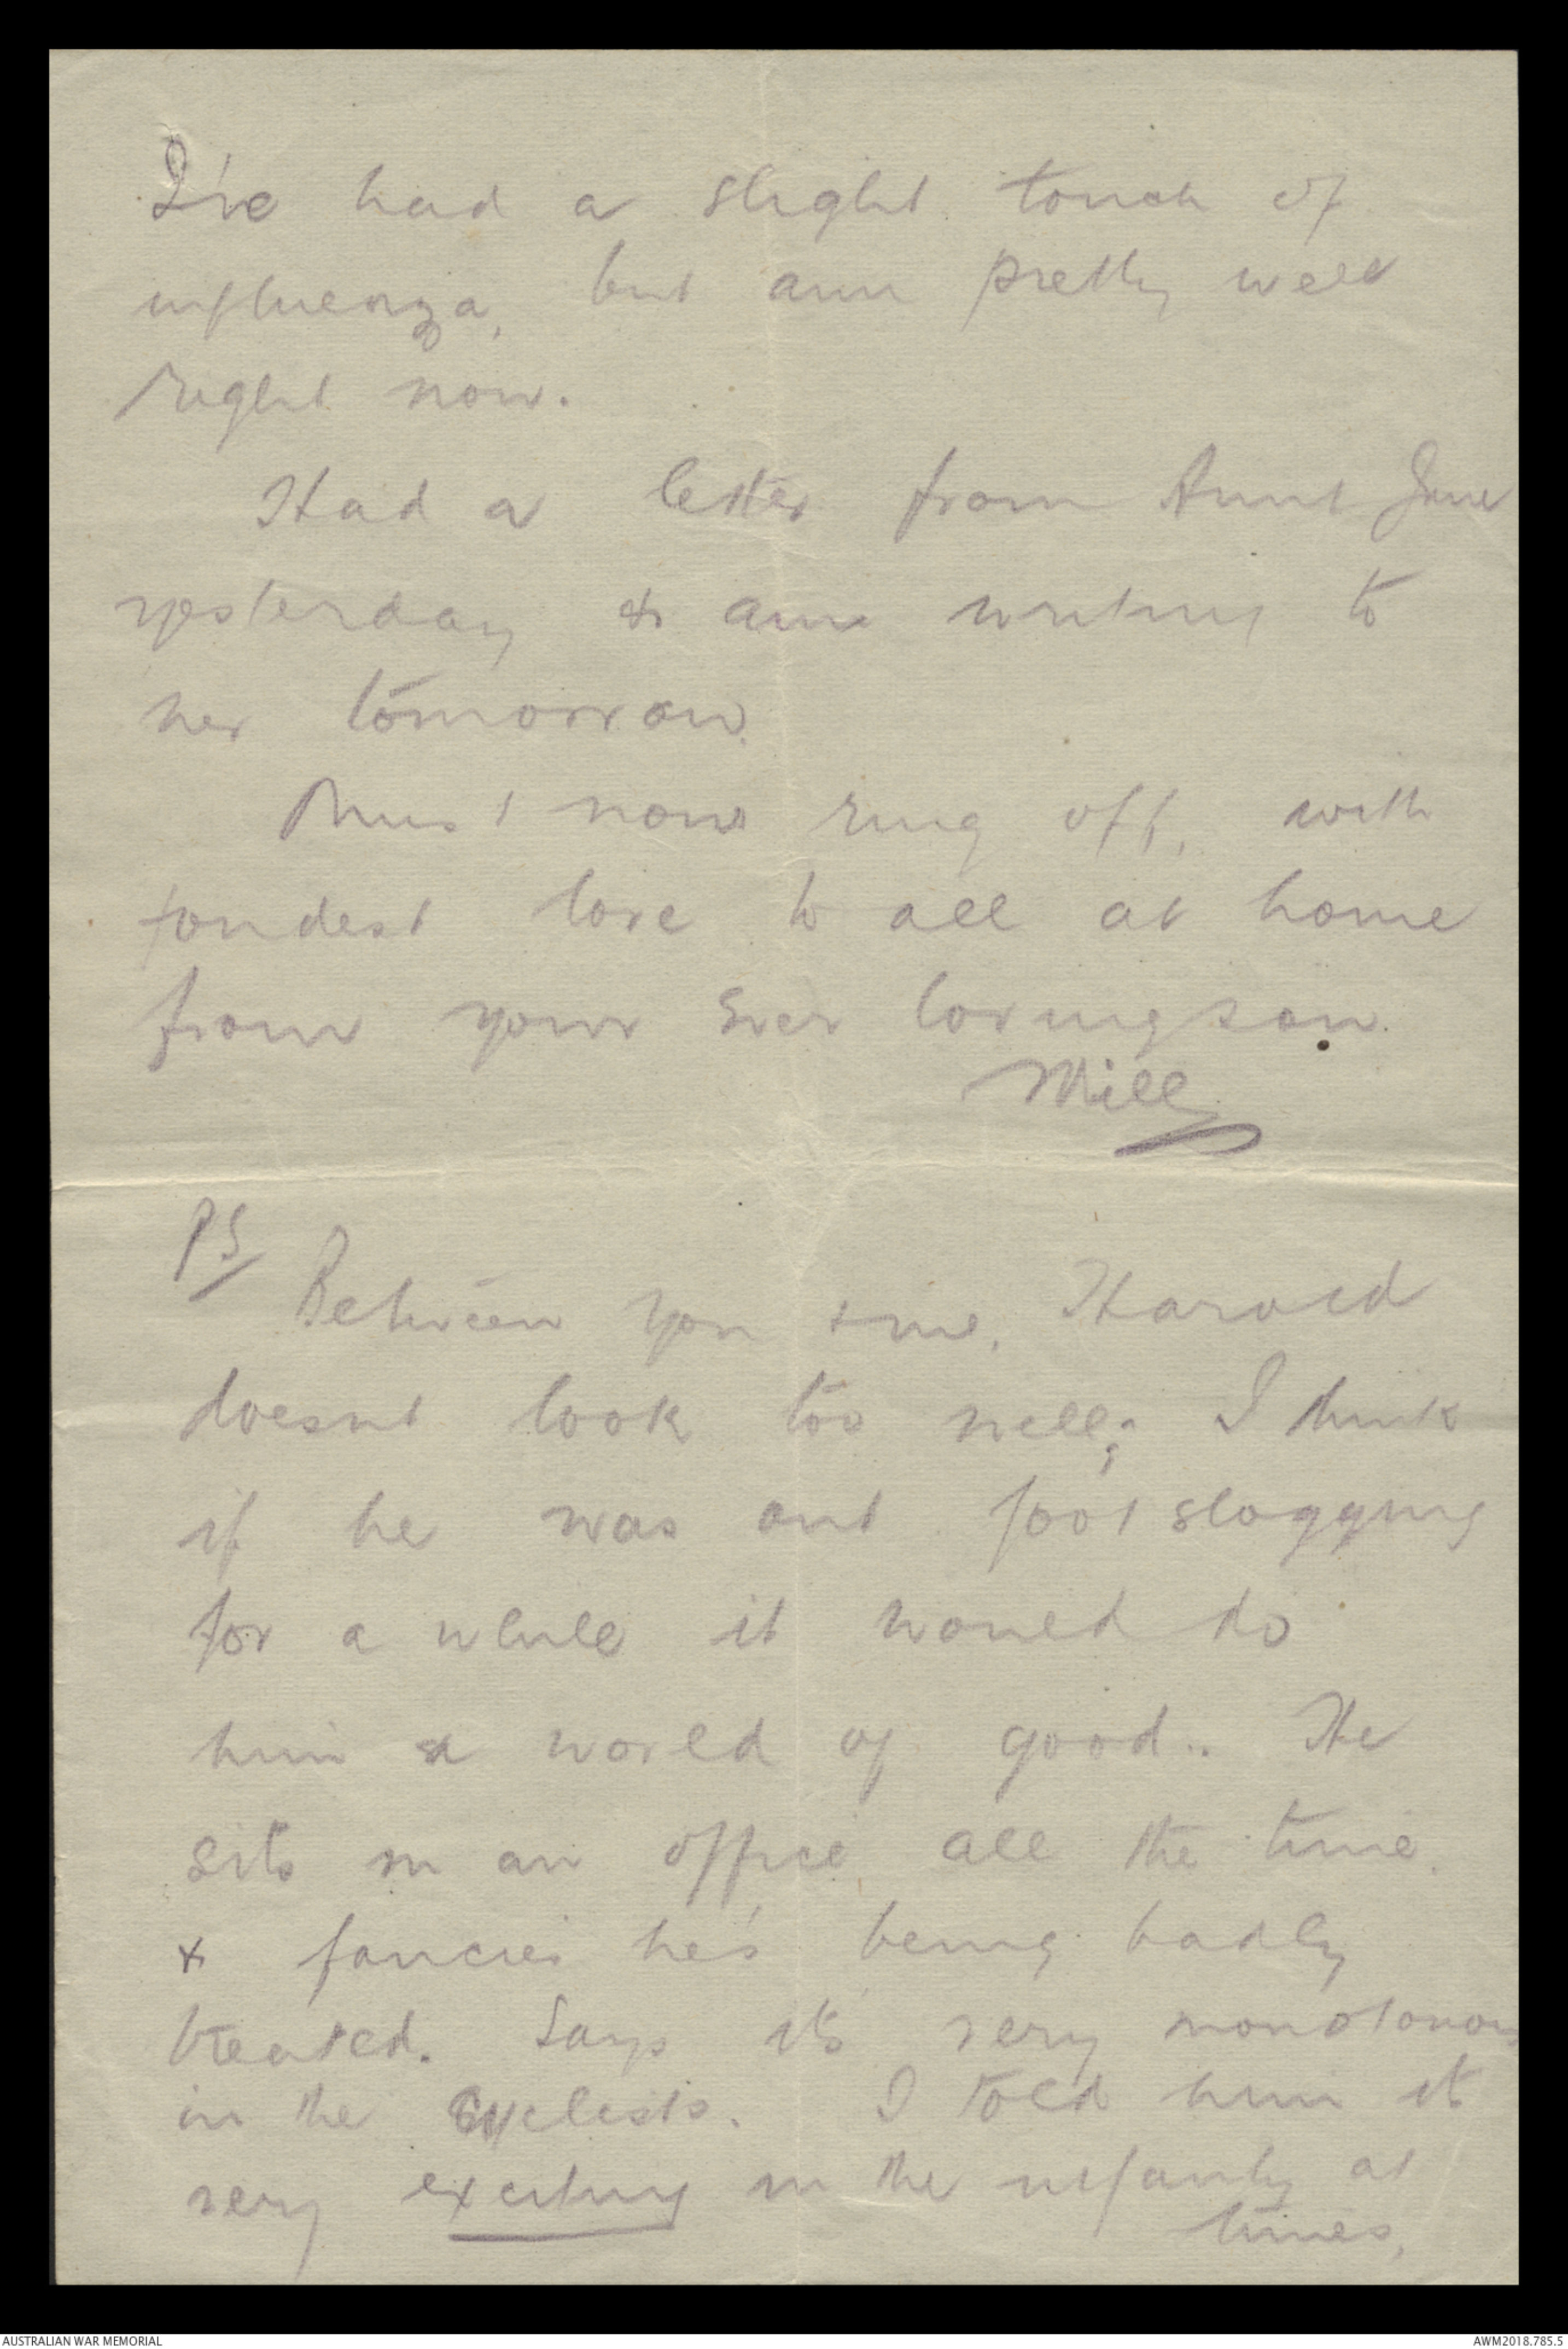 I've had a slight touch of
influenza, but am pretty well
right now.
Had a letter from Aunt Jane
yesterday & am writing to
her tomorrow.
Must now ring off, with
fondest love to all at home
from your ever loving son.
Will
PS/
Between you + me, Harold
doesnt look too well; I think
if he was out foot slogging
for a while it would do
him a world of good.. He
sits in an office all the time.
& fancies he's being badly
treated. Says its very monotonous
in the Cyclists. I told him it
very exciting in the infantry at
times,
AUSTRALIAN WAR MEMORIAL
AWM2018.785.5